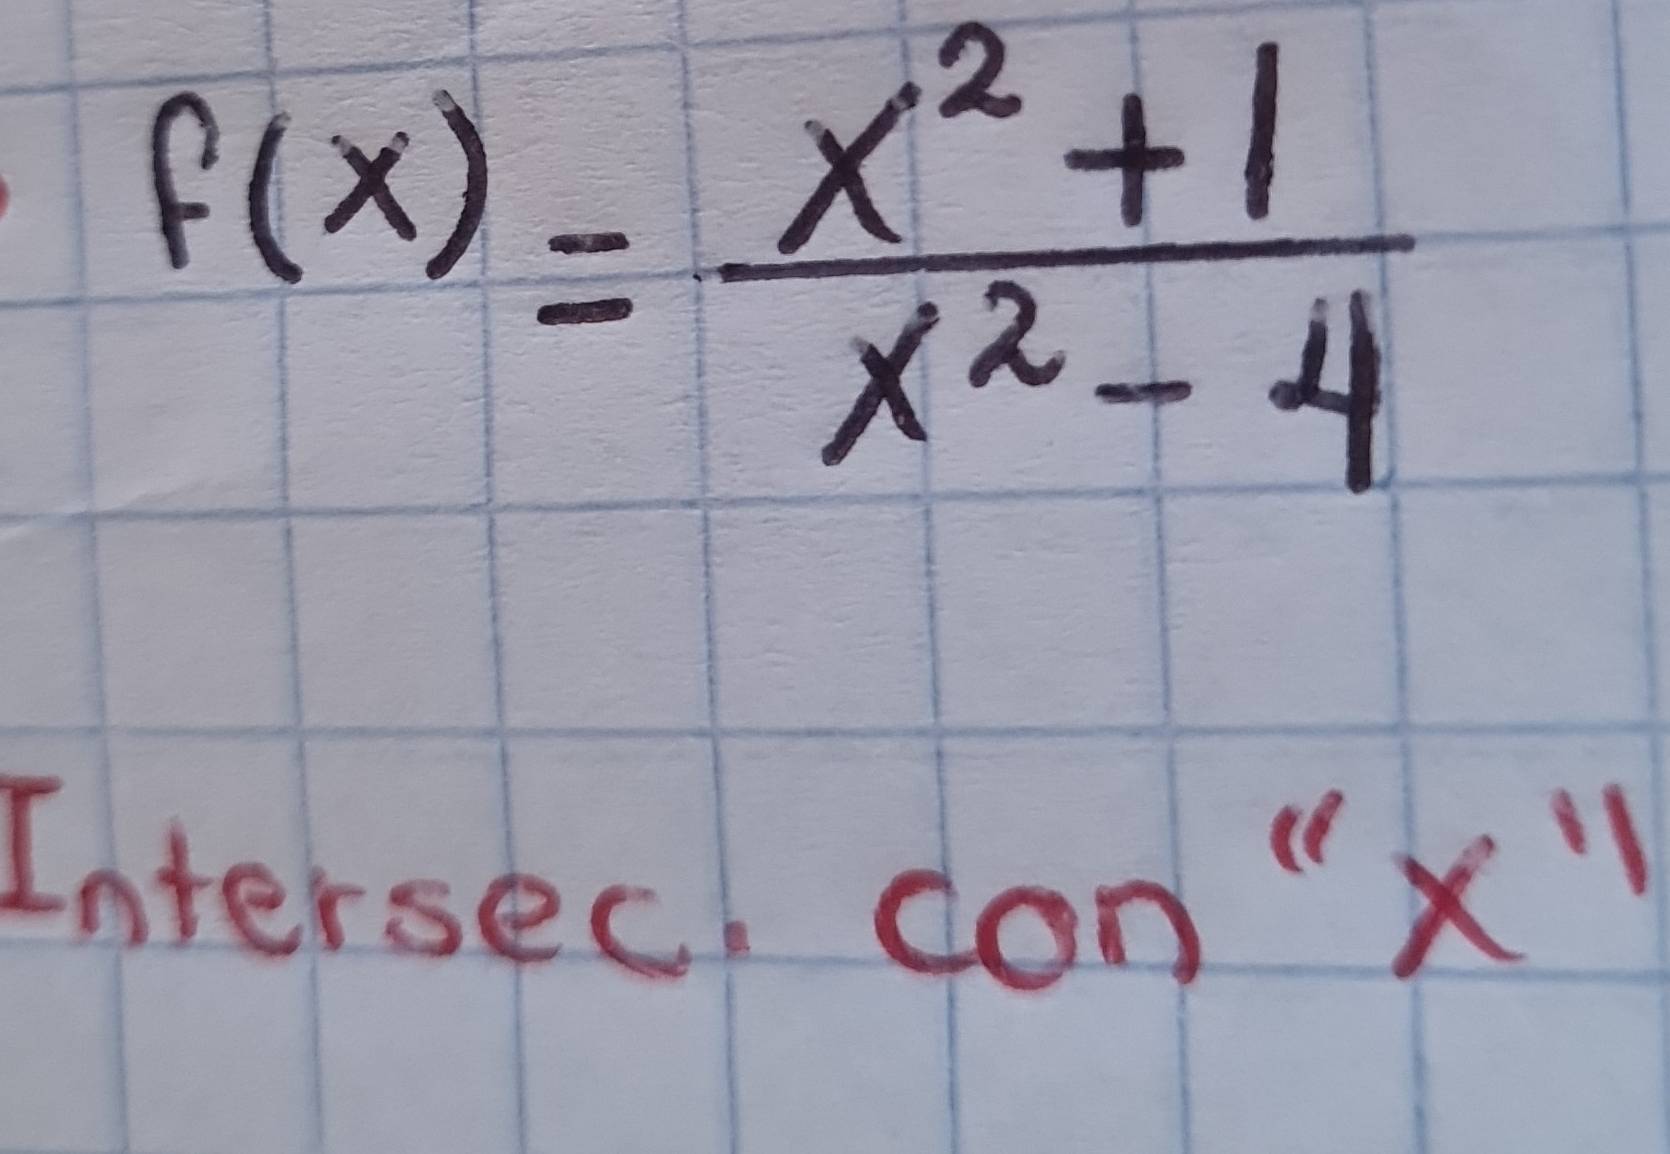 f(x) = x² + 1
x² - 4
Intersec. con "x"